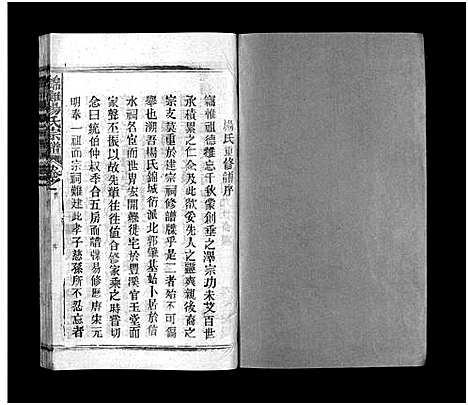 楊氏重修譜序
竊惟祖德難忘千秋蒙創垂之澤宗功未艾百世
承積累之仁念及此欲愛先人之靈爽親後裔之
宗支莫重於建宗祠修譜牒乎是二者始不可偏
舉也溯吾楊氏錦城衍派北郭肇基始卜居於信
水祠名宦而世界宏開繼徙宅於豐溪官玉堂而
家聲丕振以故先輩往往值合修家乘之時嘗切
念曰統伯仲叔季合五房而譜牒易修歷唐宋元
明奉一祖而宗祠難建此孝子慈孫所不忍忘者
楊氏宗譜